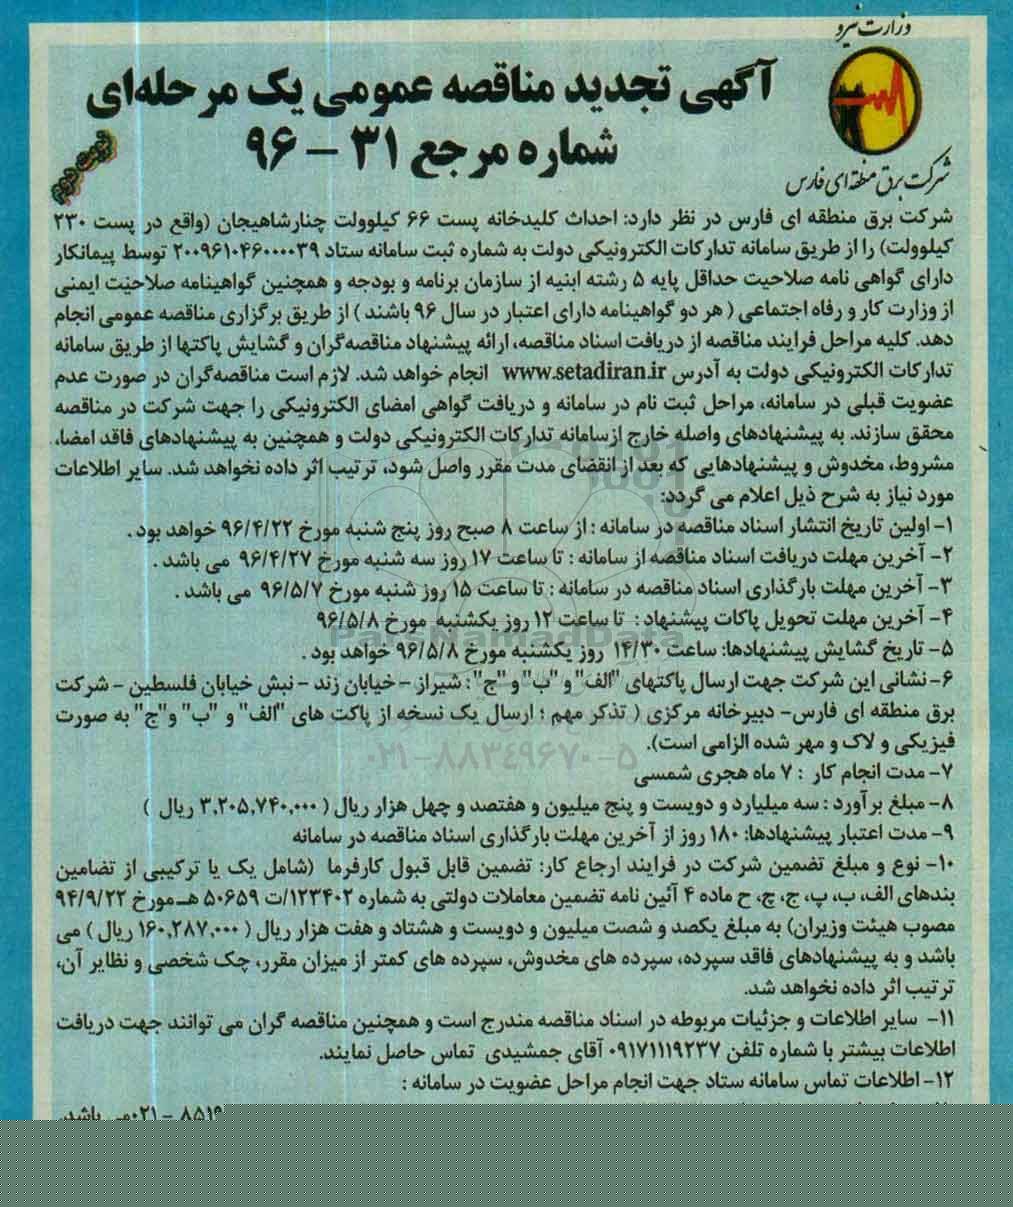 وزارت نیرو
شرکت برق منطقه ای فارس
آگهی تجدید مناقصه عمومی یک مرحله‌ای
شماره مرجع ۳۱ – ۹۶
نوبت دوم
شرکت برق منطقه ای فارس در نظر دارد: احداث کلیدخانه پست ۶۶ کیلوولت چنارشاهیجان (واقع در پست ۲۳۰
کیلوولت) را از طریق سامانه تدارکات الکترونیکی دولت به شماره ثبت سامانه ستاد ۲۰۰۹۶۱۰۴۶۰۰۰۰۳۹ توسط پیمانکار
دارای گواهی نامه صلاحیت حداقل پایه ۵ رشته ابنیه از سازمان برنامه و بودجه و همچنین گواهینامه صلاحیت ایمنی
از وزارت کار و رفاه اجتماعی ( هر دو گواهینامه دارای اعتبار در سال ۹۶ باشند ) از طریق برگزاری مناقصه عمومی انجام
دهد. کلیه مراحل فرایند مناقصه از دریافت اسناد مناقصه، ارائه پیشنهاد مناقصه‌گران و گشایش پاکتها از طریق سامانه
تدارکات الکترونیکی دولت به آدرس www.setadiran.ir انجام خواهد شد. لازم است مناقصه‌گران در صورت عدم
عضویت قبلی در سامانه، مراحل ثبت نام در سامانه و دریافت گواهی امضای الکترونیکی را جهت شرکت در مناقصه
محقق سازند. به پیشنهادهای واصله خارج ازسامانه تدارکات الکترونیکی دولت و همچنین به پیشنهادهای فاقد امضا،
مشروط، مخدوش و پیشنهادهایی که بعد از انقضای مدت مقرر واصل شود، ترتیب اثر داده نخواهد شد. سایر اطلاعات
مورد نیاز به شرح ذیل اعلام می گردد:
۱- اولین تاریخ انتشار اسناد مناقصه در سامانه : از ساعت ۸ صبح روز پنج شنبه مورخ ۹۶/۴/۲۲ خواهد بود .
۲- آخرین مهلت دریافت اسناد مناقصه از سامانه : تا ساعت ۱۷ روز سه شنبه مورخ ۹۶/۴/۲۷ می باشد .
۳- آخرین مهلت بارگذاری اسناد مناقصه در سامانه : تا ساعت ۱۵ روز شنبه مورخ ۹۶/۵/۷ می باشد .
۴- آخرین مهلت تحویل پاکات پیشنهاد : تا ساعت ۱۲ روز یکشنبه مورخ ۹۶/۵/۸
۵- تاریخ گشایش پیشنهادها: ساعت ۱۴/۳۰ روز یکشنبه مورخ ۹۶/۵/۸ خواهد بود .
۶- نشانی این شرکت جهت ارسال پاکتهای "الف" و "ب" و "ج" : شیراز – خیابان زند – نبش خیابان فلسطین – شرکت
برق منطقه ای فارس- دبیرخانه مرکزی ( تذکر مهم ؛ ارسال یک نسخه از پاکت های "الف" و "ب" و "ج" به صورت
فیزیکی و لاک و مهر شده الزامی است).
۷- مدت انجام کار : ۷ ماه هجری شمسی
۸- مبلغ برآورد : سه میلیارد و دویست و پنج میلیون و هفتصد و چهل هزار ریال ( ۳,۲۰۵,۷۴۰,۰۰۰ ریال )
۹- مدت اعتبار پیشنهادها: ۱۸۰ روز از آخرین مهلت بارگذاری اسناد مناقصه در سامانه
۱۰- نوع و مبلغ تضمین شرکت در فرایند ارجاع کار: تضمین قابل قبول کارفرما (شامل یک یا ترکیبی از تضامین
بندهای الف، ب، پ، ج، چ، ح ماده ۴ آئین نامه تضمین معاملات دولتی به شماره ۱۲۳۴۰۲/ت ۵۰۶۵۹ هـ مورخ ۹۴/۹/۲۲
مصوب هیئت وزیران) به مبلغ یکصد و شصت میلیون و دویست و هشتاد و هفت هزار ریال ( ۱۶۰,۲۸۷,۰۰۰ ریال ) می
باشد و به پیشنهادهای فاقد سپرده، سپرده های مخدوش، سپرده های کمتر از میزان مقرر، چک شخصی و نظایر آن،
ترتیب اثر داده نخواهد شد.
۱۱- سایر اطلاعات و جزئیات مربوطه در اسناد مناقصه مندرج است و همچنین مناقصه گران می توانند جهت دریافت
اطلاعات بیشتر با شماره تلفن ۰۹۱۷۱۱۱۹۲۳۷ آقای جمشیدی تماس حاصل نمایند.
۱۲- اطلاعات تماس سامانه ستاد جهت انجام مراحل عضویت در سامانه :
ParsNamadData
۰۲۱-۸۸۳۴۹۶۷۰-۵